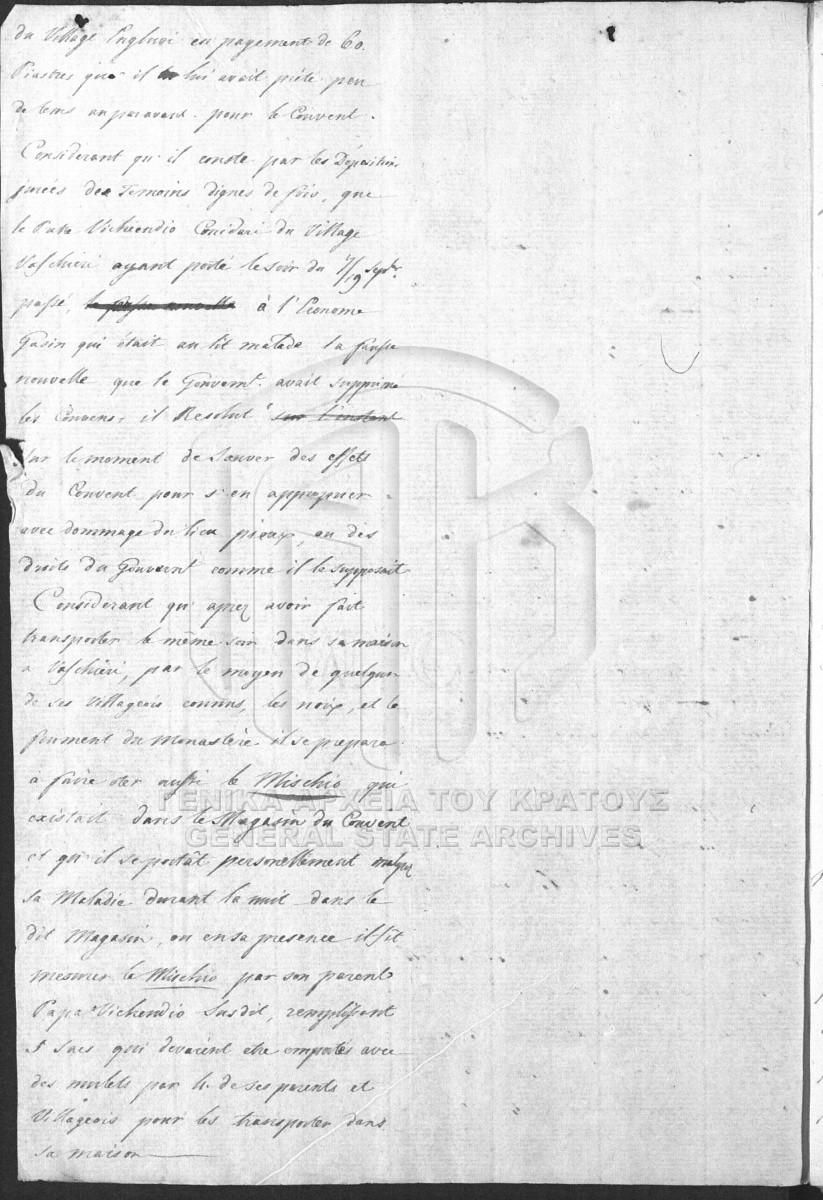 du Village Engluvi en payement de 60.
Piastres que il lui avait prêté peu
de tems auparavant pour le Couvent.
Considerant qu'il conste par les Déposition
jurées des Temoins dignes de foix, que
le Papa Vichendio Conidari du Village
Vafchieri ayant porté le soir du 7/19 Sepbr.
passé, à l'Econome
Gasin qui était au lit malade la fausse
nouvelle que le Gouvernt. avait supprimé
les Couvens, il Resolut sur l'instant
sur le moment de Sauver des effets
du Couvent pour s'en approprier
avec dommage du lieu pieux, ou des
droits du Gouvernt comme il le supposait
Considerant qu'aprez avoir fait
transporter le même soir dans sa maison
a Vafchieri, par le moyen de quelqun
de ses Villageois connus, les noix, et le
froument du Monastère il se prepara
à faire oter aussi le Mischio qui
existait dans le Magasin du Couvent
et qu'il se portât personellement malgrez
sa Maladie durant la nuit dans le
dit Magasin, ou en sa presence il fit
mesurer le Mischio par son parent
Papa Vichendio Susdit, remplissent
5 sacs qui devaient etre emportés avec
des mulets par 4. de ses parents et
Villageois pour les transporter dans
sa maison
ΓΕΝΙΚΑ ΑΡΧΕΙΑ ΤΟΥ ΚΡΑΤΟΥΣ
GENERAL STATE ARCHIVES